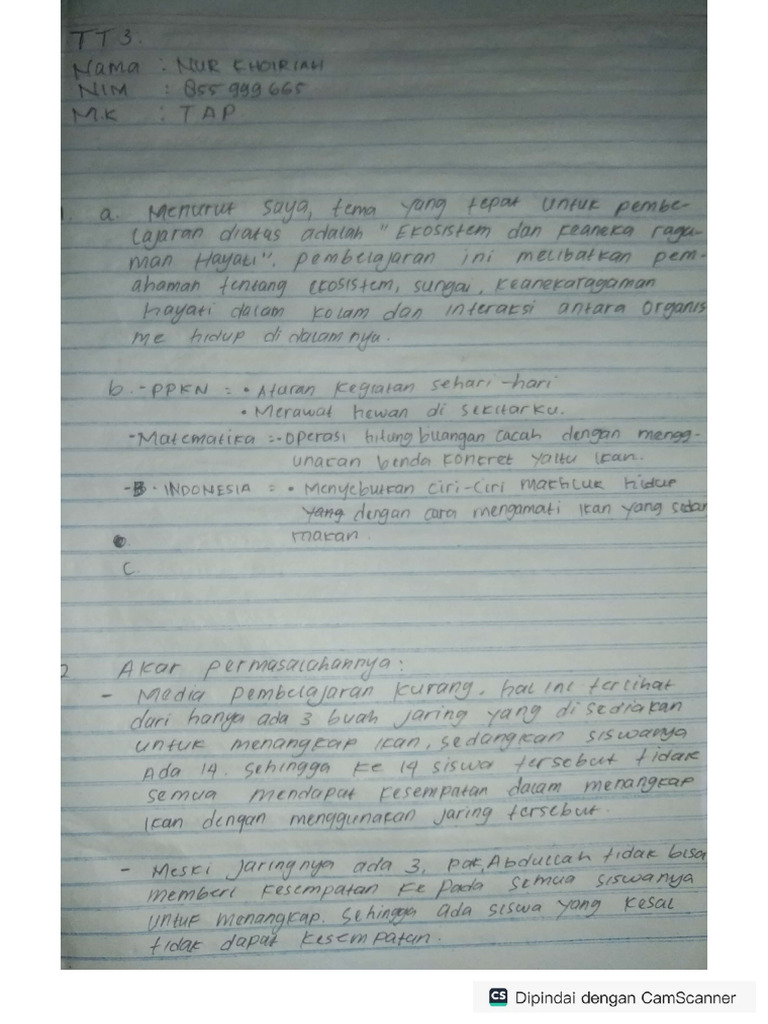 TT3.
Nama : NUR KHOIRIAH
NIM : 855 999 665
M.K : TAP
1. a. Menurut saya, tema yang tepat untuk pembe-
lajaran diatas adalah "Ekosistem dan keaneka raga-
man Hayati". pembelajaran ini melibatkan pem-
ahaman tentang ekosistem, sungai, keanekaragaman
hayati dalam kolam dan interaksi antara organis
me hidup di dalamnya.
b. - PPKN = • Aturan kegiatan sehari-hari
• Merawat hewan di sekitarku.
- Matematika = • operasi hitung buangan cacah dengan mengg-
unakan benda konkret yaitu ikan.
- B. INDONESIA = • Menyebutkan ciri-ciri makhluk hidup
yang dengan cara mengamati ikan yang sedan
makan.
C.
2 Akar permasalahannya :
- Media pembelajaran kurang. hal ini terlihat
dari hanya ada 3 buah jaring yang di sediakan
untuk menangkap ikan, sedangkan siswanya
Ada 14. sehingga ke 14 siswa tersebut tidak
semua mendapat kesempatan dalam menangkap
ikan dengan menggunakan jaring tersebut.
- Meski jaringnya ada 3, pak Abdullah tidak bisa
memberi kesempatan ke pada semua siswanya
untuk menangkap. sehingga ada siswa yang kesal
tidak dapat kesempatan.
CS Dipindai dengan CamScanner